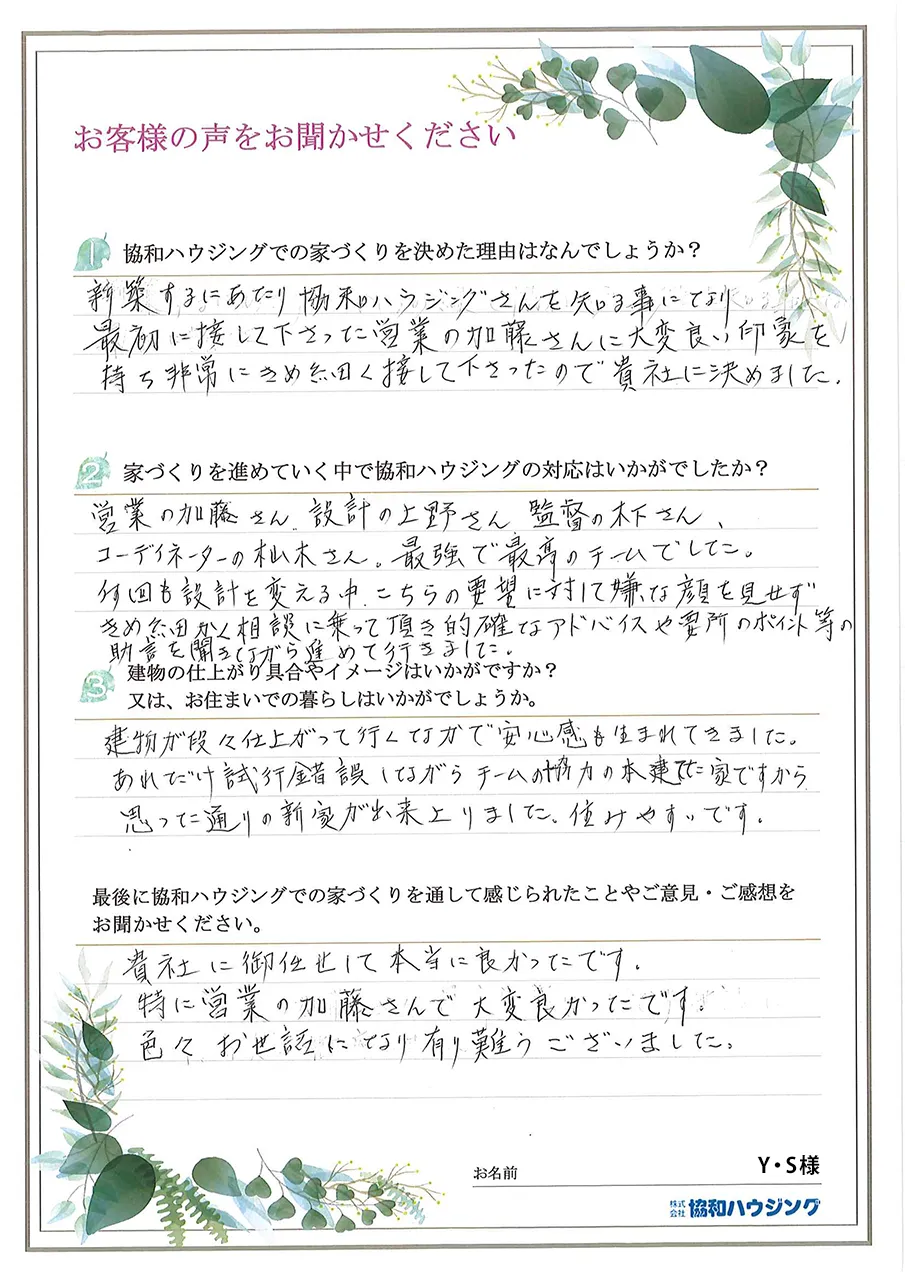 お客様の声をお聞かせください
1 協和ハウジングでの家づくりを決めた理由はなんでしょうか？
新築するにあたり協和ハウジングさんを知る事になり
最初に接して下さった営業の加藤さんに大変良い印象を
持ち非常にきめ細く接して下さったので貴社に決めました.
2 家づくりを進めていく中で協和ハウジングの対応はいかがでしたか？
営業の加藤さん、設計の上野さん 監督の木下さん、
コーディネーターの杣木さん。最強で最高のチームでした。
何回も設計を変える中、こちらの要望に対して嫌な顔を見せず
きめ細かく相談に乗って頂き的確なアドバイスや要所のポイント等の
助言を聞きながら進めて行きました。
3 建物の仕上がり具合やイメージはいかがですか？
又は、お住まいでの暮らしはいかがでしょうか。
建物が段々仕上がって行くなかで安心感も生まれてきました。
あれだけ試行錯誤しながらチームの協力の本建てた家ですから
思った通りの新家が出来上りました、住みやすいです.
最後に協和ハウジングでの家づくりを通して感じられたことやご意見・ご感想を
お聞かせください。
貴社に御任せして本当に良かったです.
特に営業の加藤さんで大変良かったです.
色々、お世話になり有り難うございました。
お名前 Y・S様
株式会社 協和ハウジング